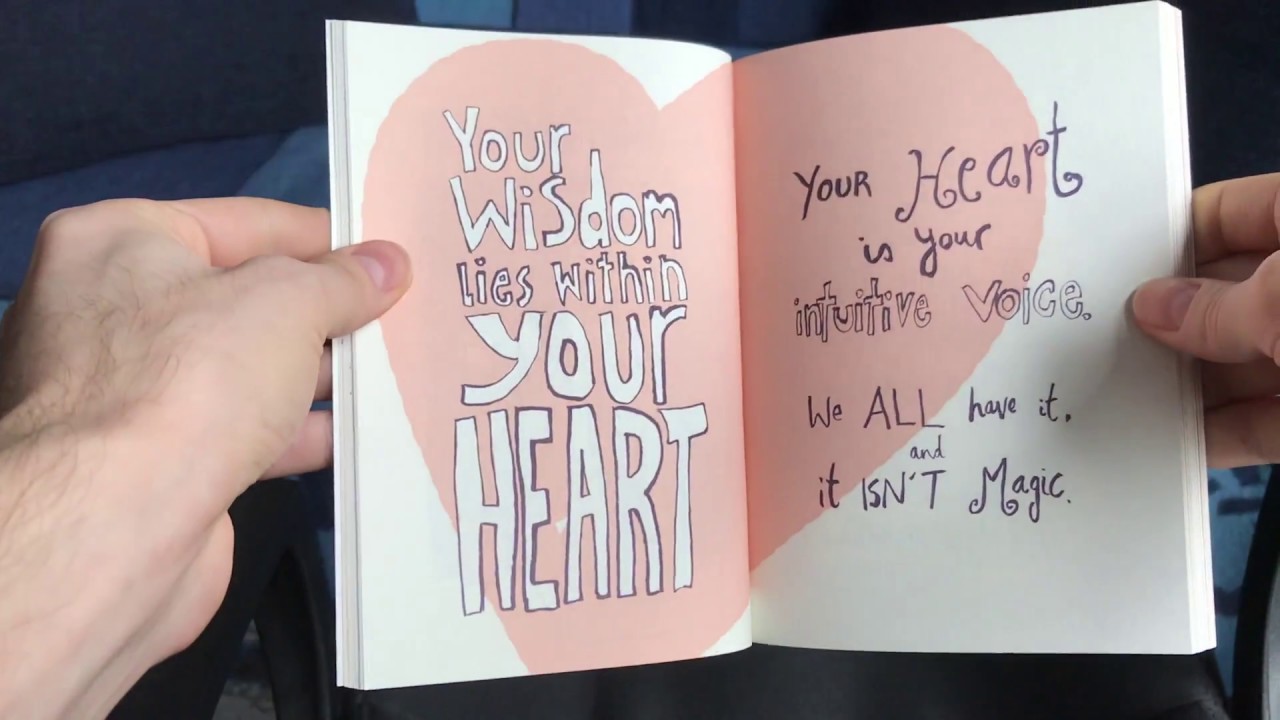 Your
WiSdom
lies within
your
HEART
YOUR Heart
is your
intuitive voice.
We ALL have it.
and
it ISN'T Magic.